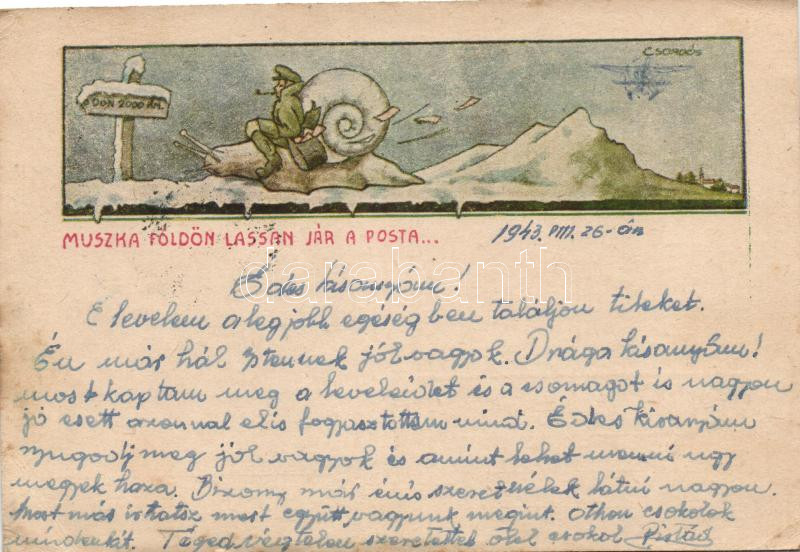 CSORDÁS
DON 2000 KM.
MUSZKA FÖLDÖN LASSAN JÁR A POSTA...
1943. VIII. 26-án
Édes kisanyám!
E levelem a legjobb egéségben találjon titeket.
Én már hál Istennek jól vagyok. Drága kisanyám!
most kaptam meg a leveleidet és a csomagot is nagyon
jó esett azonnal elis fogyasztottam mind. Édes kisanyám
nyugodj meg jól vagyok és amint lehet menni ugy
megyek haza. Bizony már énis szeretnélek látni nagyon.
Most már irhatsz mert együtt vagyunk megint. othon csokolok
mindenkit. Téged végtelen szeretettel ölel csokol Pistád
darabanth